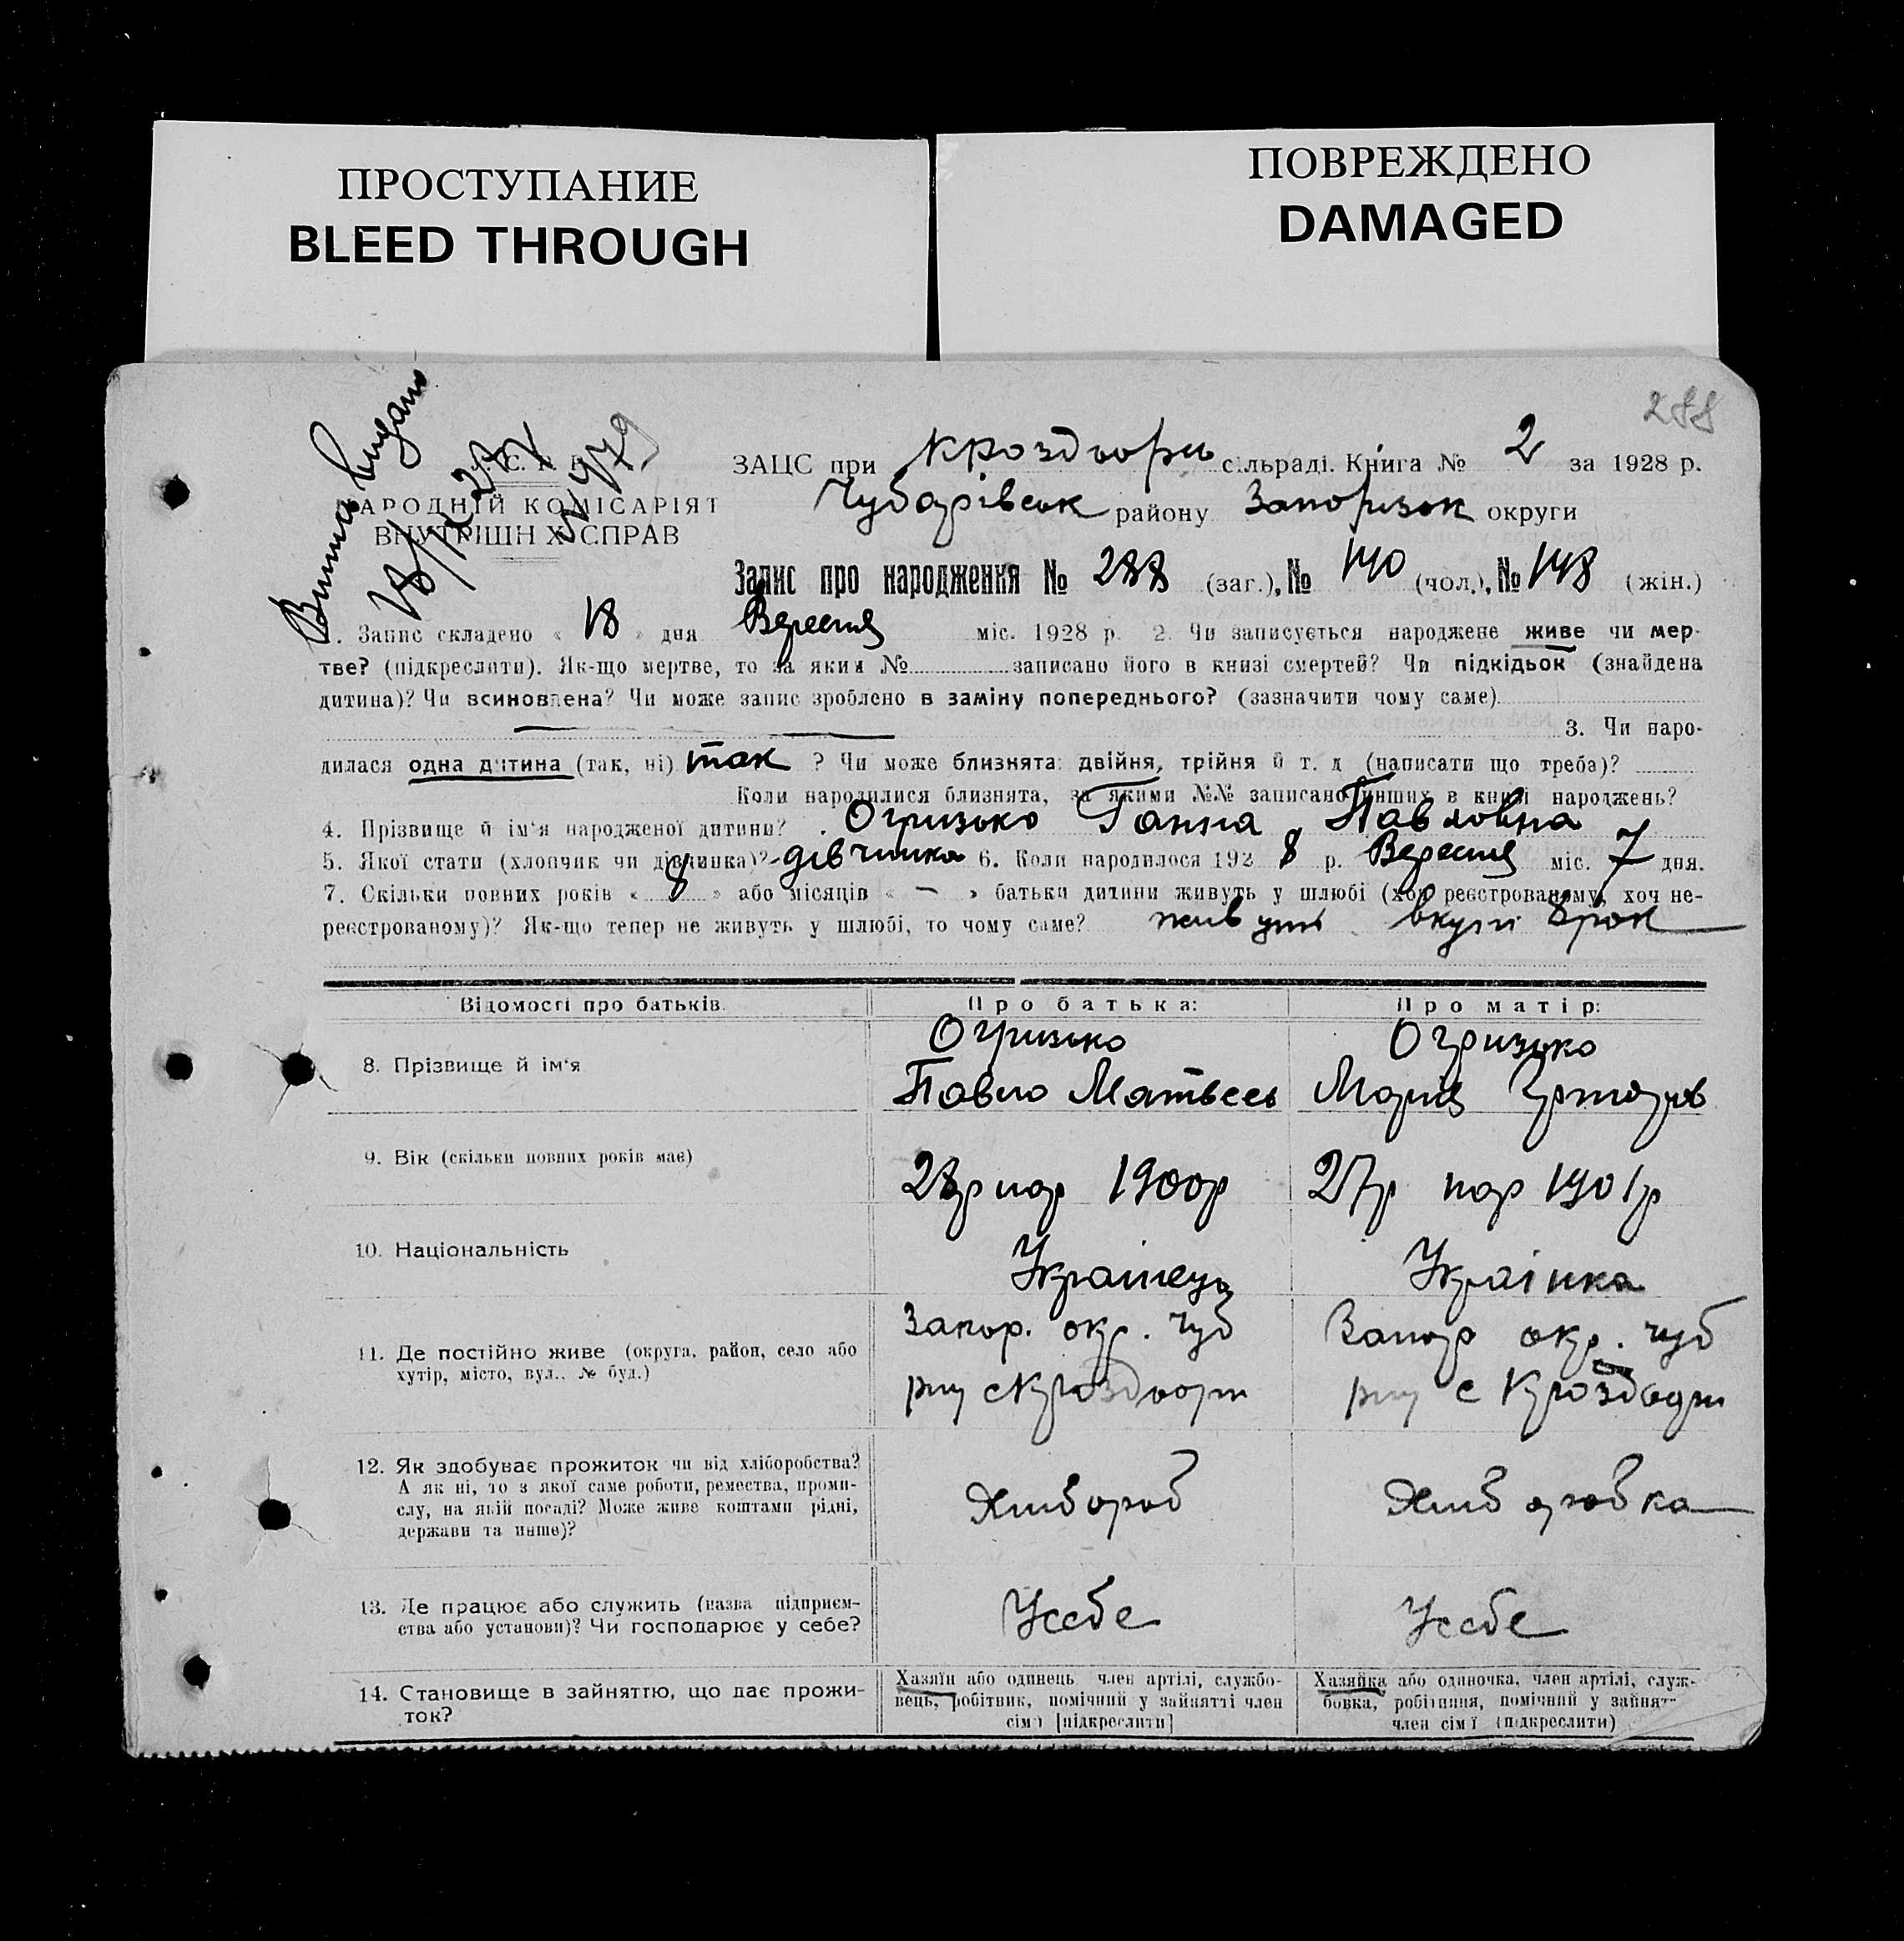 ПРОСТУПАНИЕ
BLEED THROUGH
ПОВРЕЖДЕНО
DAMAGED
288
Витяг видано
18/IX 28
№ 479
НАРОДНІЙ КОМІСАРІЯТ
ВНУТРІШНІХ СПРАВ
ЗАЦС при Кроздворы сільраді. Книга № 2 за 1928 р.
Чубарівськ району Запорізьк округи
Запис про народження № 288 (заг.), № 140 (чол.), № 148 (жін.)
1. Запис складено « 18 » дня Вересня міс. 1928 р. 2. Чи записується народжене живе чи мер-
тве? (підкреслити). Як-що мертве, то за яким № записано його в книзі смертей? Чи підкідьок (знайдена
дитина)? Чи всиновлена? Чи може запис зроблено в заміну попереднього? (зазначити чому саме)
3. Чи наро-
дилася одна дитина (так, ні) так ? Чи може близнята: двійня, трійня й т. д (написати що треба)?
Коли народилися близнята, за якими №№ записано инших в книзі народжень?
4. Прізвище й ім'я народженої дитини? Огризько Ганна Павловна
5. Якої стати (хлопчик чи дівчинка)? дівчинка 6. Коли народилося 1928 р. Вересня міс. 7 дня.
7. Скільки повних років « 8 » або місяців « — » батьки дитини живуть у шлюбі (хоч реєстрованому, хоч не-
реєстрованому)? Як-що тепер не живуть у шлюбі, то чому саме? живуть вкупі 8 рок
Відомості про батьків. Про батька: Про матір:
8. Прізвище й ім'я
Огризько
Павло Матвеев
Огризько
Марія
9. Вік (скільки повних років має)
28р нар 1900р
27р нар 1901р
10. Національність
Українець
Українка
11. Де постійно живе (округа, район, село або
хутір, місто, вул.. № буд.)
Запор. окр. Чуб
рну с Кроздвори
Запор окр. Чуб
рну с Кроздвори
12. Як здобуває прожиток чи від хліборобства?
А як ні, то з якої саме роботи, ремества, проми-
слу, на якій посаді? Може живе коштами рідні,
держави та инше)?
Хлібороб
Хліборобка
13. Де працює або служить (назва підприєм-
ства або установи)? Чи господарює у себе?
Усебе
Усебе
14. Становище в зайняттю, що дає прожи-
ток?
Хазяїн або одинець член артілі, службо-
вець, робітник, помічний у зайнятті член
сім'ї [підкреслити]
Хазяйка або одиночка, член артілі, служ-
бовка, робітниця, помічний у зайнят-
член сім'ї (підкреслити)